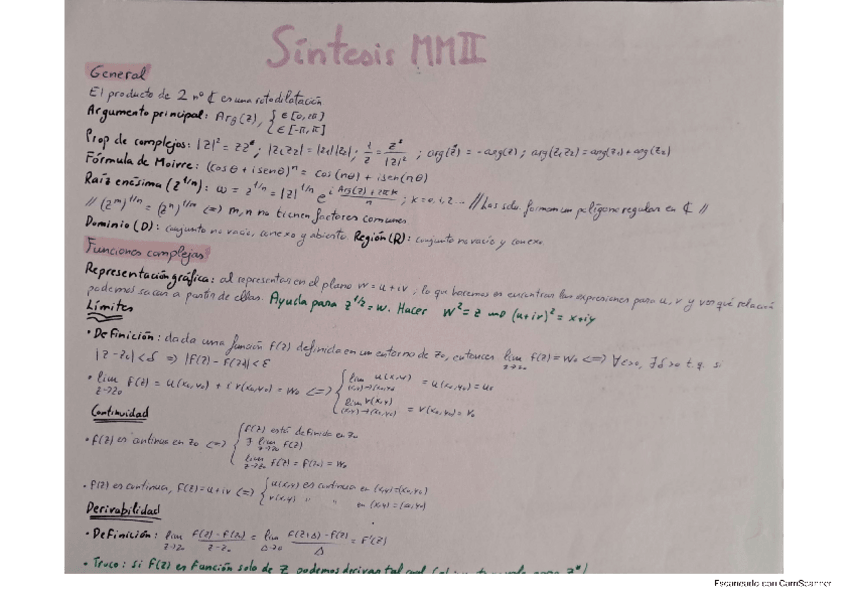 Síntesis MMII
General
El producto de 2 nº ℂ es una rotodilatación
Argumento principal: Arg(z), { ∈ [0, 2π] ∈ [-π, π]
Prop de complejos: |z|² = zz*; |z₁z₂| = |z₁||z₂|; 1/z = z*/|z|²; arg(z*) = -arg(z); arg(z₁z₂) = arg(z₁)+arg(z₂)
Fórmula de Moivre: (cosθ + isenθ)ⁿ = cos(nθ) + isen(nθ)
Raíz enésima (z^1/n): ω = z^1/n = |z|^1/n e^(i (Arg(z)+2πk)/n); k = 0,1,2... // Las sols. forman un polígono regular en ℂ //
// (z^m)^1/n = (z^n)^1/m <=> m, n no tienen factores comunes
Dominio (D): conjunto no vacío, conexo y abierto. Región (R): conjunto no vacío y conexo.
Funciones complejas
Representación gráfica: al representar en el plano w = u + iv, lo que hacemos es encontrar las expresiones para u, v y ver qué relación
podemos sacar a partir de ellas. Ayuda para z^1/2 = w. Hacer w² = z → (u+iv)² = x+iy
Límites
• Definición: dada una función f(z) definida en un entorno de z₀, entonces lim z→z₀ f(z) = w₀ <=> ∀ε>0, ∃δ>0 t.q. si
|z-z₀| < δ => |f(z) - f(z₀)| < ε
• lim z→z₀ f(z) = u(x₀,y₀) + i v(x₀,y₀) = w₀ <=> { lim (x,y)→(x₀,y₀) u(x,y) = u(x₀,y₀) = u₀
lim (x,y)→(x₀,y₀) v(x,y) = v(x₀,y₀) = v₀
Continuidad
• f(z) es continua en z₀ <=> { f(z) está definida en z₀
∃ lim z→z₀ f(z)
lim z→z₀ f(z) = f(z₀) = w₀
• f(z) es continua, f(z) = u+iv <=> { u(x,y) es continua en (x,y)=(x₀,y₀)
v(x,y) " " en (x,y)=(x₀,y₀)
Derivabilidad
• Definición: lim z→z₀ (f(z) - f(z₀))/(z-z₀) = lim Δ→0 (f(z+Δ) - f(z))/Δ = f'(z)
• Truco: si f(z) es función solo de z podemos derivar tal cual
Escaneado con CamScanner